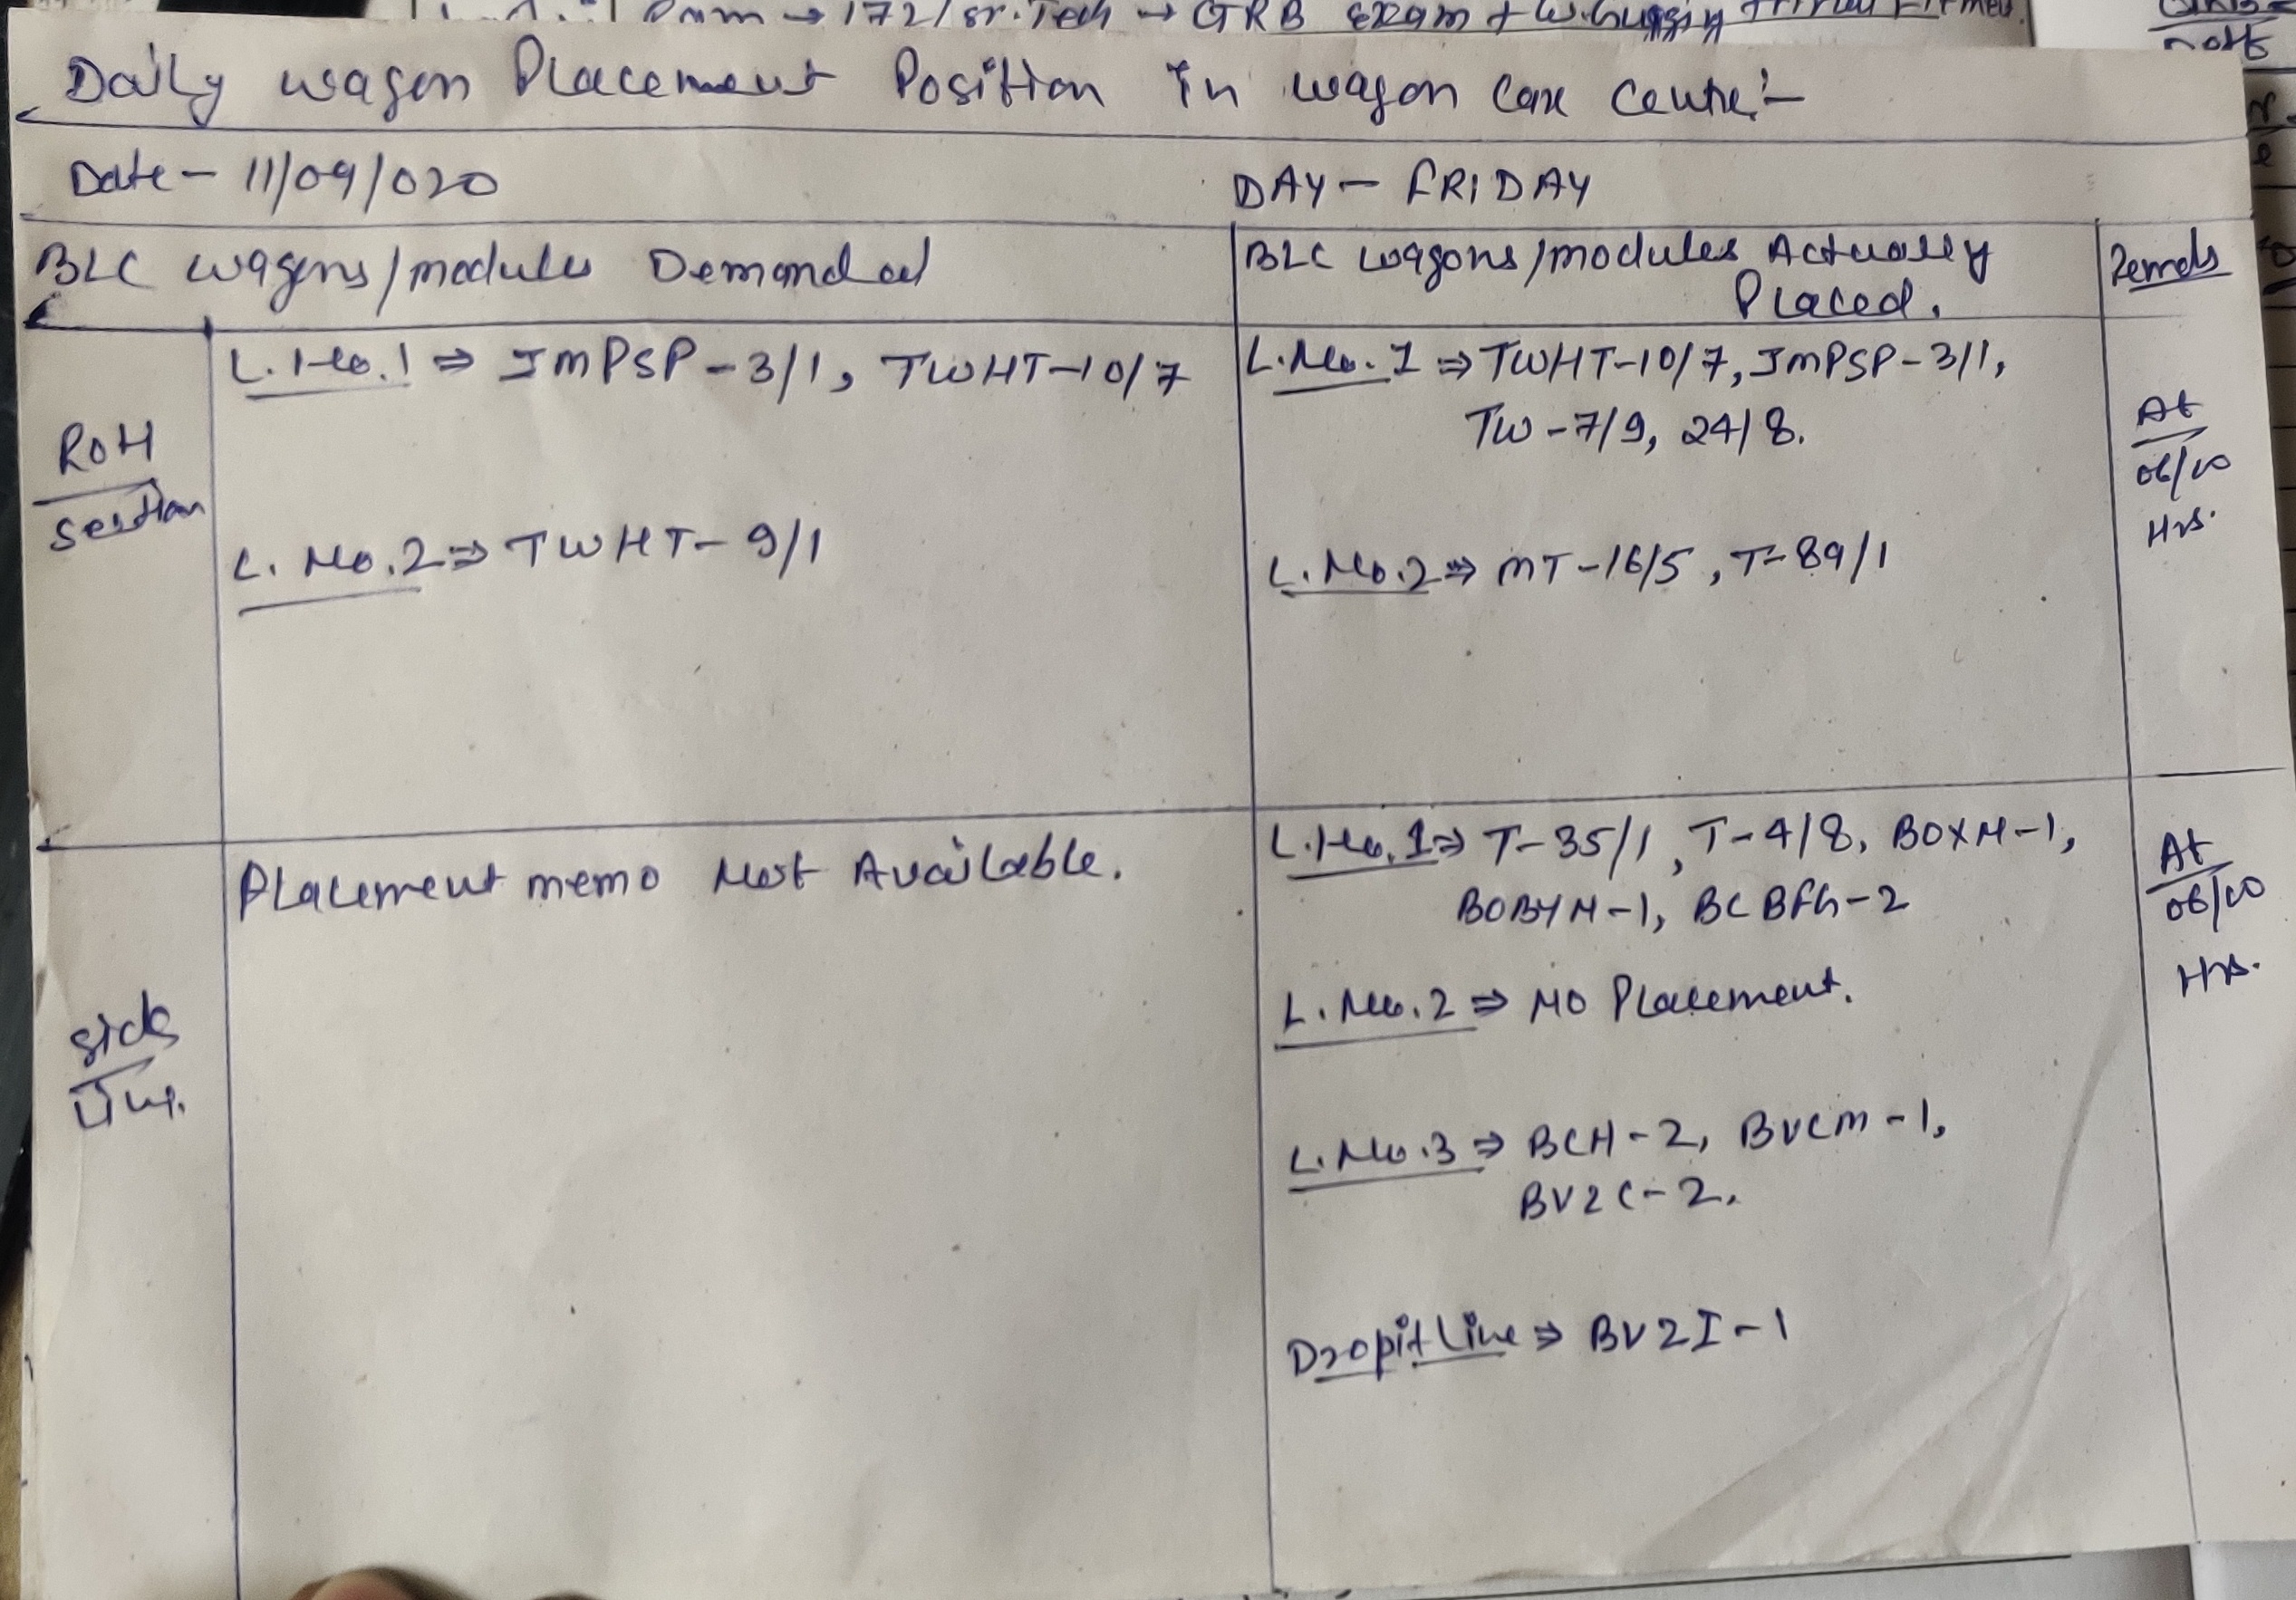 172/Sr. Tech → GRB Exam + W.
Daily wagon Placement Position in wagon Care Centre:-
Date - 11/09/020
DAY - FRIDAY
BLC wagons/modules Demanded
BLC wagons/modules Actually
Placed.
ROH
Section
L. No. 1 ⇒ JMPSP-3/1, TWHT-10/7
L. No. 2 ⇒ TWHT-9/1
L. No. 1 ⇒ TWHT-10/7, JMPSP-3/1,
TW-7/9, 24/8.
L. No. 2 ⇒ MT-16/5, T-89/1
At
06/00
Hrs.
Sick
Line.
Placement memo Not Available.
L. No. 1 ⇒ T-35/1, T-4/8, BOXN-1,
BOBYN-1, BCBFG-2
L. No. 2 ⇒ NO Placement.
L. No. 3 ⇒ BCH-2, BVCM-1,
BVZC-2.
Dropit Line ⇒ BVZI-1
At
06/00
Hrs.